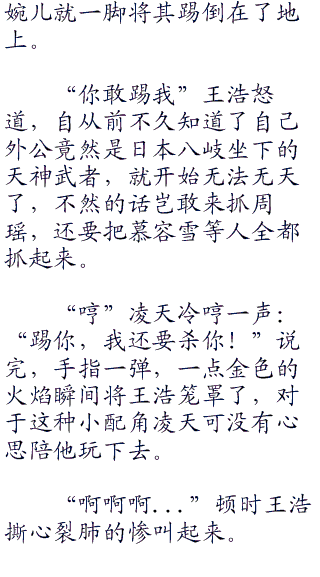 婉儿就一脚将其踢倒在了地
上。
“你敢踢我”王浩怒
道，自从前不久知道了自己
外公竟然是日本八岐坐下的
天神武者，就开始无法无天
了，不然的话岂敢来抓周
瑶，还要把慕容雪等人全都
抓起来。
“哼”凌天冷哼一声：
“踢你，我还要杀你！”说
完，手指一弹，一点金色的
火焰瞬间将王浩笼罩了，对
于这种小配角凌天可没有心
思陪他玩下去。
“啊啊啊...”顿时王浩
撕心裂肺的惨叫起来。